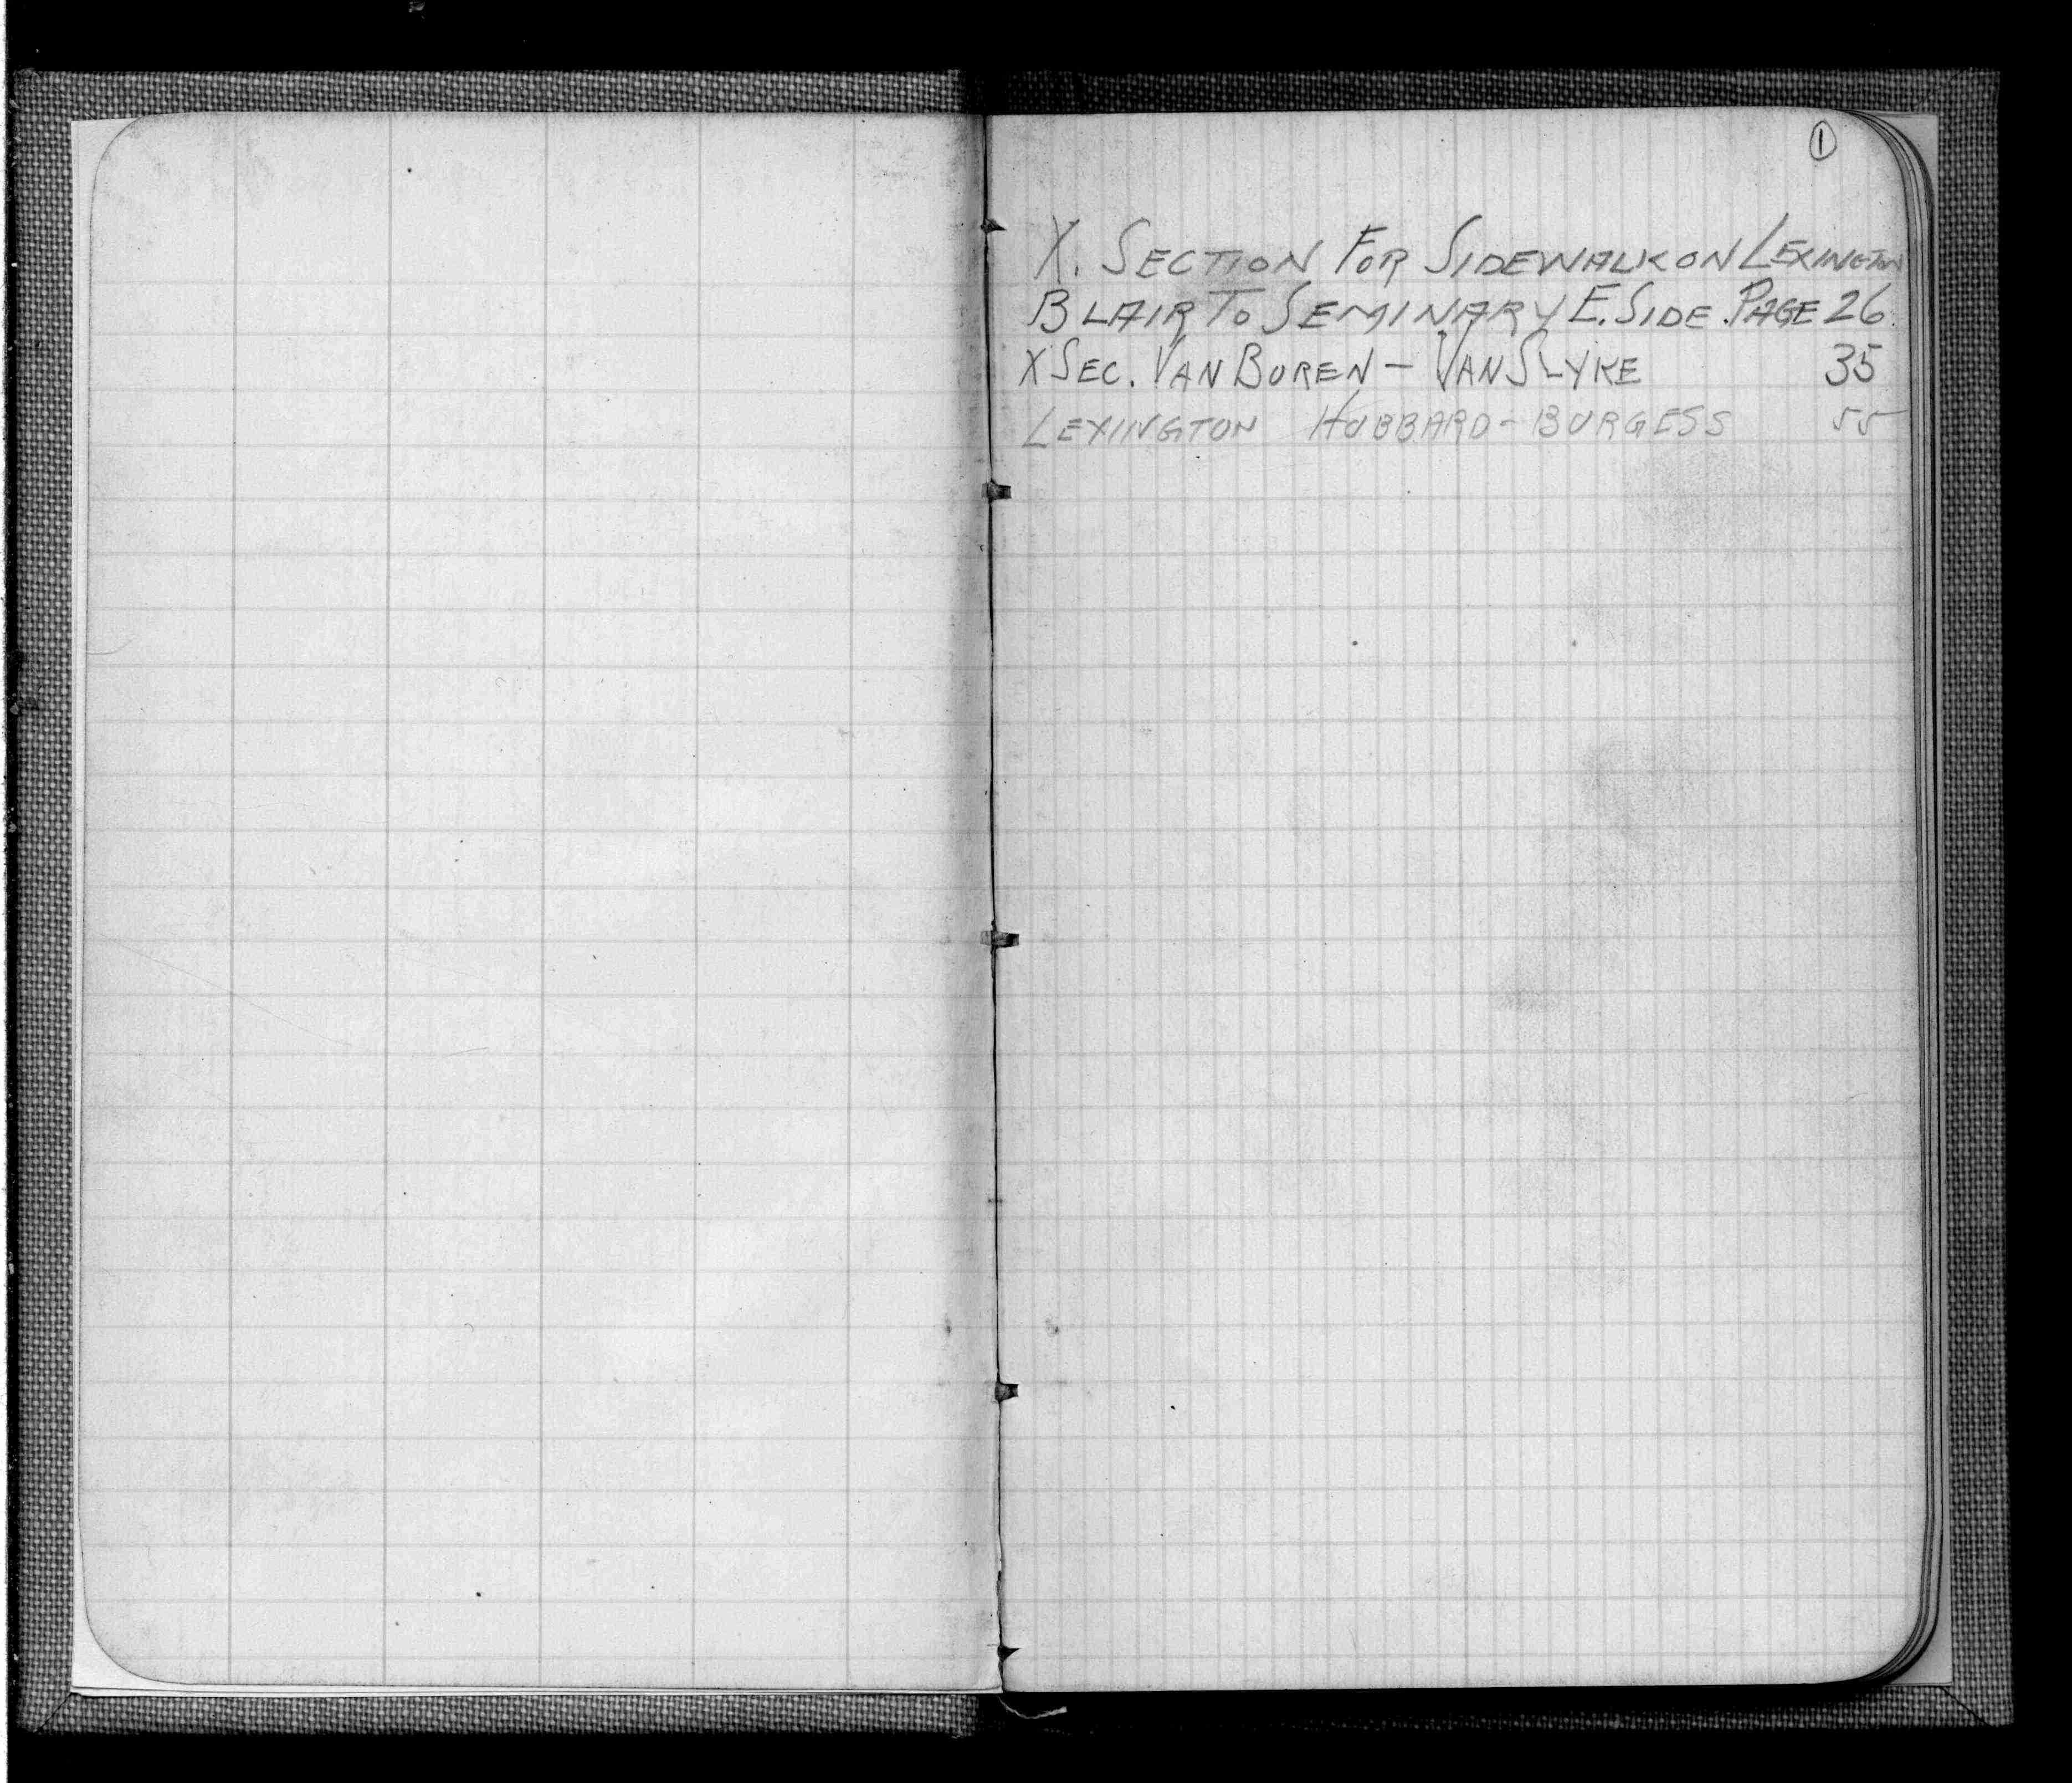 1
X. SECTION FOR SIDEWALK ON LEXINGTON
BLAIR TO SEMINARY E. SIDE. PAGE 26
X SEC. VAN BUREN - VAN SLYKE 35
LEXINGTON HUBBARD - BURGESS 55